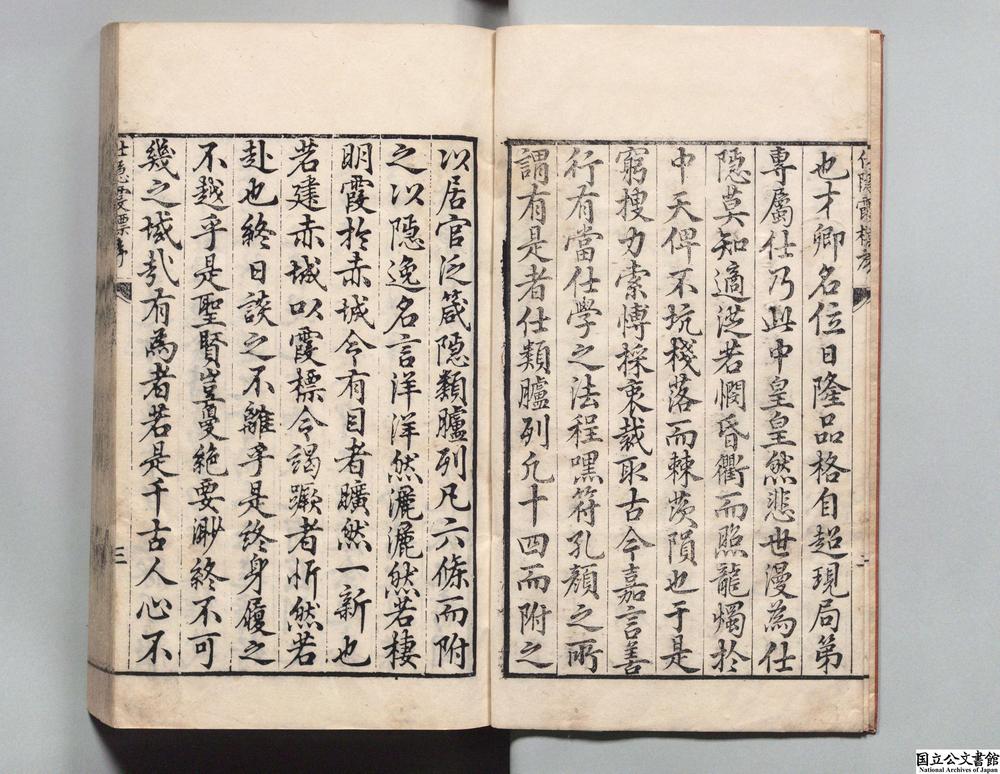 也才卿名位日隆品格自超現局第
專屬仕乃此中皇皇然悲世漫為仕
隱莫知適從若憫昏衢而照龍燭於
中天俾不坑棧落而棘茨隕也于是
窮搜力索博採衷裁取古今嘉言善
行有當仕學之法程嘿符孔顏之所
謂有是者仕類臚列凡十四而附之
以居官泛箴隱類臚列凡六條而附
之以隱逸名言洋洋然灑灑然若棲
明霞於赤城令有目者曠然一新也
若建赤城以霞標令謁蹶者忻然若
赴也終日談之不離乎是終身履之
不越乎是聖賢豈敻絶要渺終不可
幾之域哉有為者若是千古人心不
仕隱霞標序
二
仕隱霞標序
三
国立公文書館
National Archives of Japan